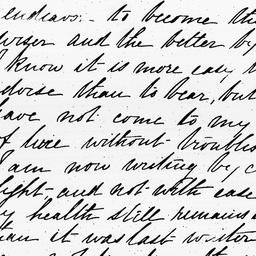 endeavor - to become the
wiser and the better by
I know it is more easy
advise than to bear, but
have not come to my
of here without troubles
am now writing by c
light - and not with ease
y health still remains
than it was last winter